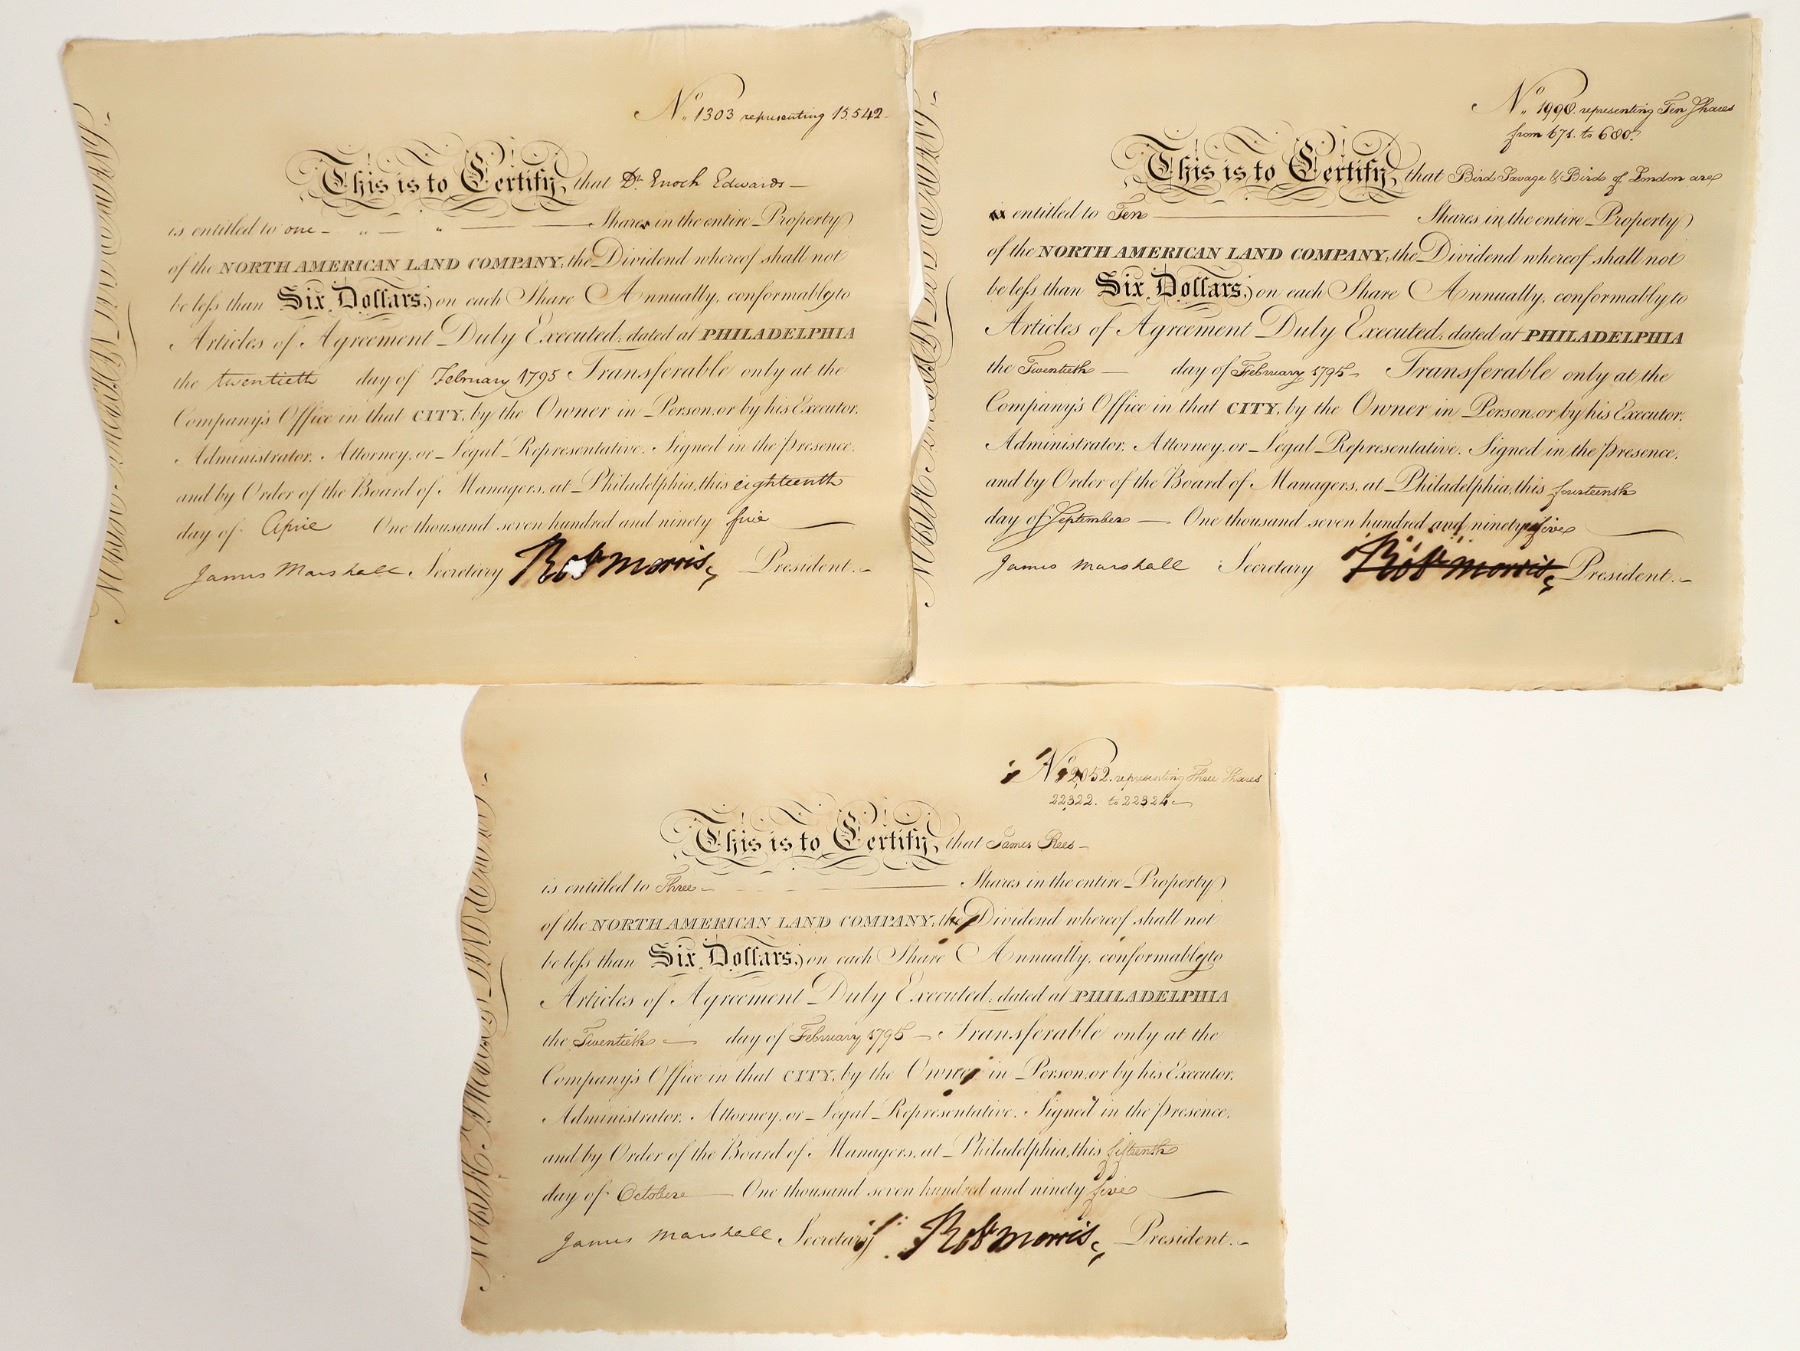 No. 1303 representing 15542
This is to Certify, that Dr. Enoch Edwards
is entitled to one Share in the entire Property
of the NORTH AMERICAN LAND COMPANY, the Dividend whereof shall not
be less than Six Dollars, on each Share Annually, conformably to
Articles of Agreement Duly Executed, dated at PHILADELPHIA
the twentieth day of February 1795 Transferable only at the
Company's Office in that CITY, by the Owner in Person, or by his Executor,
Administrator, Attorney, or Legal Representative. Signed in the presence,
and by Order of the Board of Managers, at Philadelphia, this eighteenth
day of April One thousand seven hundred and ninety five
James Marshall Secretary Robt Morris, President.
No. 1990. representing Ten Shares
from 671. to 680.
This is to Certify, that Bird Savage & Bird of London are
entitled to Ten Shares in the entire Property
of the NORTH AMERICAN LAND COMPANY, the Dividend whereof shall not
be less than Six Dollars, on each Share Annually, conformably to
Articles of Agreement Duly Executed, dated at PHILADELPHIA
the Twentieth day of February 1795 Transferable only at the
Company's Office in that CITY, by the Owner in Person, or by his Executor,
Administrator, Attorney, or Legal Representative. Signed in the presence,
and by Order of the Board of Managers, at Philadelphia, this fourteenth
day of September One thousand seven hundred and ninety five
James Marshall Secretary Robt Morris, President.
No. 2052. representing Three Shares
22322. to 22324
This is to Certify, that James Rees
is entitled to Three Shares in the entire Property
of the NORTH AMERICAN LAND COMPANY, the Dividend whereof shall not
be less than Six Dollars, on each Share Annually, conformably to
Articles of Agreement Duly Executed, dated at PHILADELPHIA
the Twentieth day of February 1795 Transferable only at the
Company's Office in that CITY, by the Owner in Person, or by his Executor,
Administrator, Attorney, or Legal Representative. Signed in the presence,
and by Order of the Board of Managers, at Philadelphia, this fifteenth
day of October One thousand seven hundred and ninety five
James Marshall Secretary Robt Morris, President.